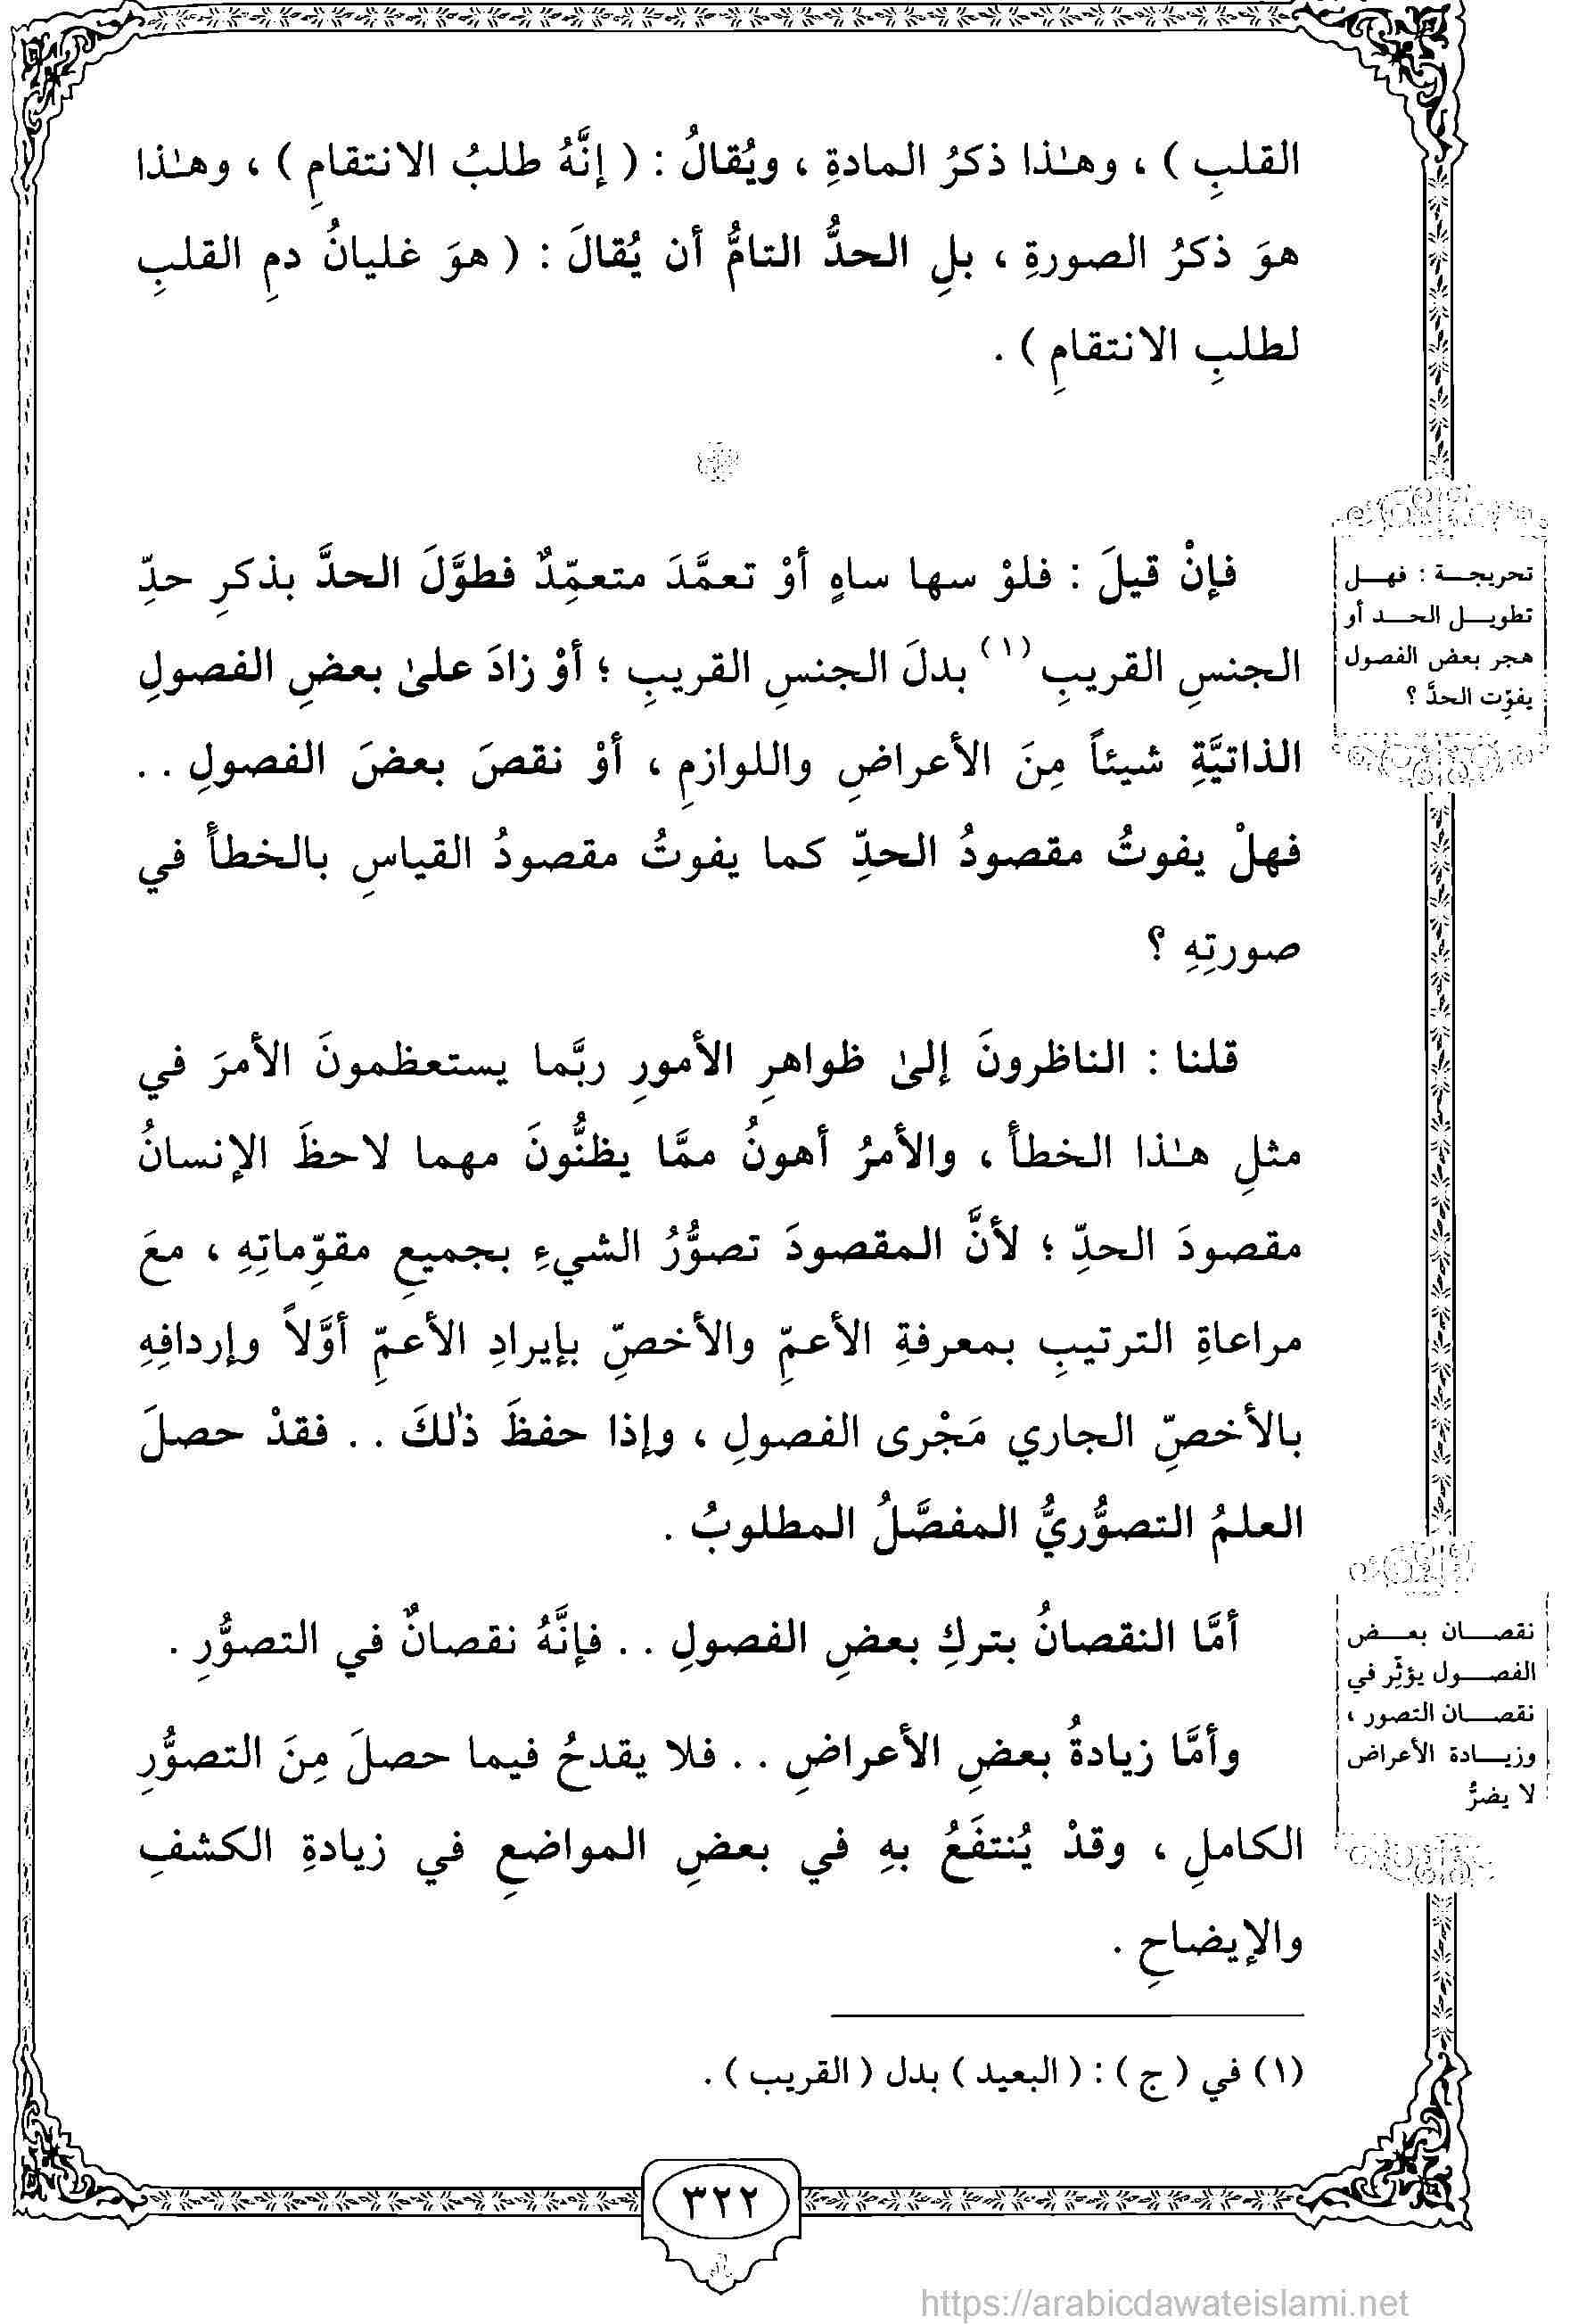 القلبِ ) ، وهـٰذا ذكرُ المادةِ ، ويُقالُ : ( إنَّهُ طلبُ الانتقامِ ) ، وهـٰذا
هوَ ذكرُ الصورةِ ، بلِ الحدُّ التامُّ أن يُقالَ : ( هوَ غليانُ دمِ القلبِ
لطلبِ الانتقامِ ) .
فإنْ قيلَ : فلوْ سها ساهٍ أوْ تعمَّدَ متعمِّدٌ فطوَّلَ الحدَّ بذكرِ حدِّ
الجنسِ القريبِ (١) بدلَ الجنسِ القريبِ ؛ أوْ زادَ علىٰ بعضِ الفصولِ
الذاتيَّةِ شيئاً مِنَ الأعراضِ واللوازمِ ، أوْ نقصَ بعضَ الفصولِ . .
فهلْ يفوتُ مقصودُ الحدِّ كما يفوتُ مقصودُ القياسِ بالخطأ في
صورتِهِ ؟
تحريجـة : فهـل
تطويـل الحـد أو
هجر بعض الفصول
يفوِّت الحدَّ ؟
قلنا : الناظرونَ إلىٰ ظواهرِ الأمورِ ربَّما يستعظمونَ الأمرَ في
مثلِ هـٰذا الخطأ ، والأمرُ أهونُ ممَّا يظنُّونَ مهما لاحظَ الإنسانُ
مقصودَ الحدِّ ؛ لأنَّ المقصودَ تصوُّرُ الشيءِ بجميعِ مقوِّماتِهِ ، معَ
مراعاةِ الترتيبِ بمعرفةِ الأعمِّ والأخصِّ بإيرادِ الأعمِّ أوَّلاً وإردافِهِ
بالأخصِّ الجاري مَجْرى الفصولِ ، وإذا حفظَ ذٰلكَ . . فقدْ حصلَ
العلمُ التصوُّريُّ المفصَّلُ المطلوبُ .
أمَّا النقصانُ بتركِ بعضِ الفصولِ . . فإنَّهُ نقصانٌ في التصوُّرِ .
وأمَّا زيادةُ بعضِ الأعراضِ . . فلا يقدحُ فيما حصلَ مِنَ التصوُّرِ
الكاملِ ، وقدْ يُنتفَعُ بهِ في بعضِ المواضعِ في زيادةِ الكشفِ
والإيضاحِ .
نقصـان بعـض
الفصـول يؤثِّر في
نقصـان التصور ،
وزيـادة الأعراض
لا يضرُّ
(١) في ( ج ) : ( البعيد ) بدل ( القريب ) .
٣٢٢
https://arabicdawateislami.net